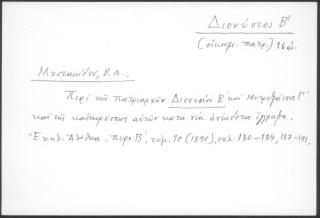 Διονύσιος Β'
(οἰκουμ. πατρ.) 16 αἰ.
Μυστακίδου, Β. Α.:
Περί τῶν πατριαρχῶν Διονυσίου Β' καί Μητροφάνους Γ'
καί τῆς καθαιρέσεως αὐτῶν κατά νέα ἀνέκδοτα ἔγγραφα.
Ἐκκλ. Ἀλήθεια, περ. Β', τόμ. 10 (1890), σελ. 180-184, 187-191.